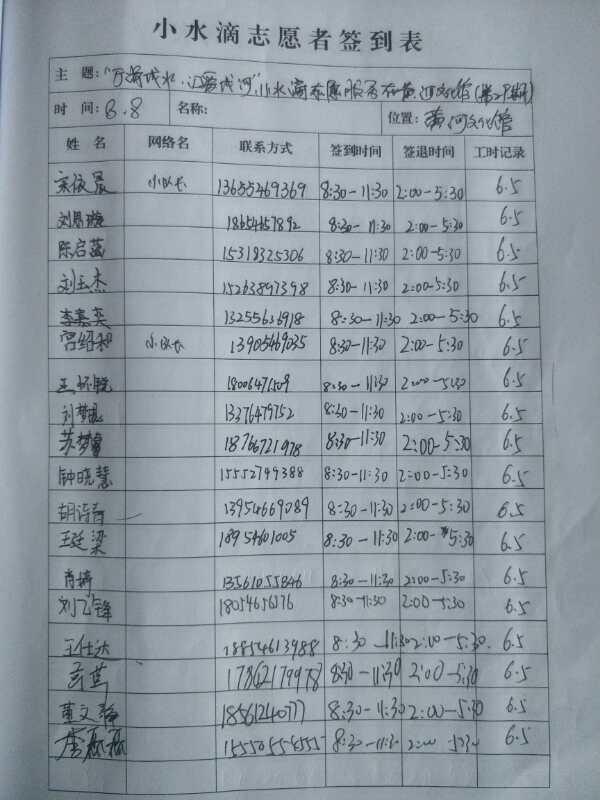 小水滴志愿者签到表
主 题: 小水滴志愿服务在黄河文化馆
时 间: 8.8 名称: 位置: 黄河文化馆
姓 名 网络名 联系方式 签到时间 签退时间 工时记录
小队长 13655469369 8:30-11:30 2:00-5:30 6.5
18654657892 8:30-11:30 2:00-5:30 6.5
陈启蕊 15318325306 8:30-11:30 2:00-5:30 6.5
刘玉杰 15263897398 8:30-11:30 2:00-5:30 6.5
李嘉英 13255636918 8:30-11:30 2:00-5:30 6.5
宫绍和 小队长 13905469035 8:30-11:30 2:00-5:30 6.5
王怀锐 18006471509 8:30-11:30 2:00-5:30 6.5
刘梦 13376479752 8:30-11:30 2:00-5:30 6.5
苏梦 18766721978 8:30-11:30 2:00-5:30 6.5
钟晓慧 15552799388 8:30-11:30 2:00-5:30 6.5
胡诗 13954669089 8:30-11:30 2:00-5:30 6.5
王延梁 18954601005 8:30-11:30 2:00-5:30 6.5
肖婷 13561055846 8:30-11:30 2:00-5:30 6.5
刘飞锋 18054656176 8:30-11:30 2:00-5:30 6.5
王仕达 18854613988 8:30-11:30 2:00-5:30 6.5
17862179978 8:30-11:30 2:00-5:30 6.5
董文静 18561240777 8:30-11:30 2:00-5:30 6.5
磊磊 8:30-11:30 2:00 6.5